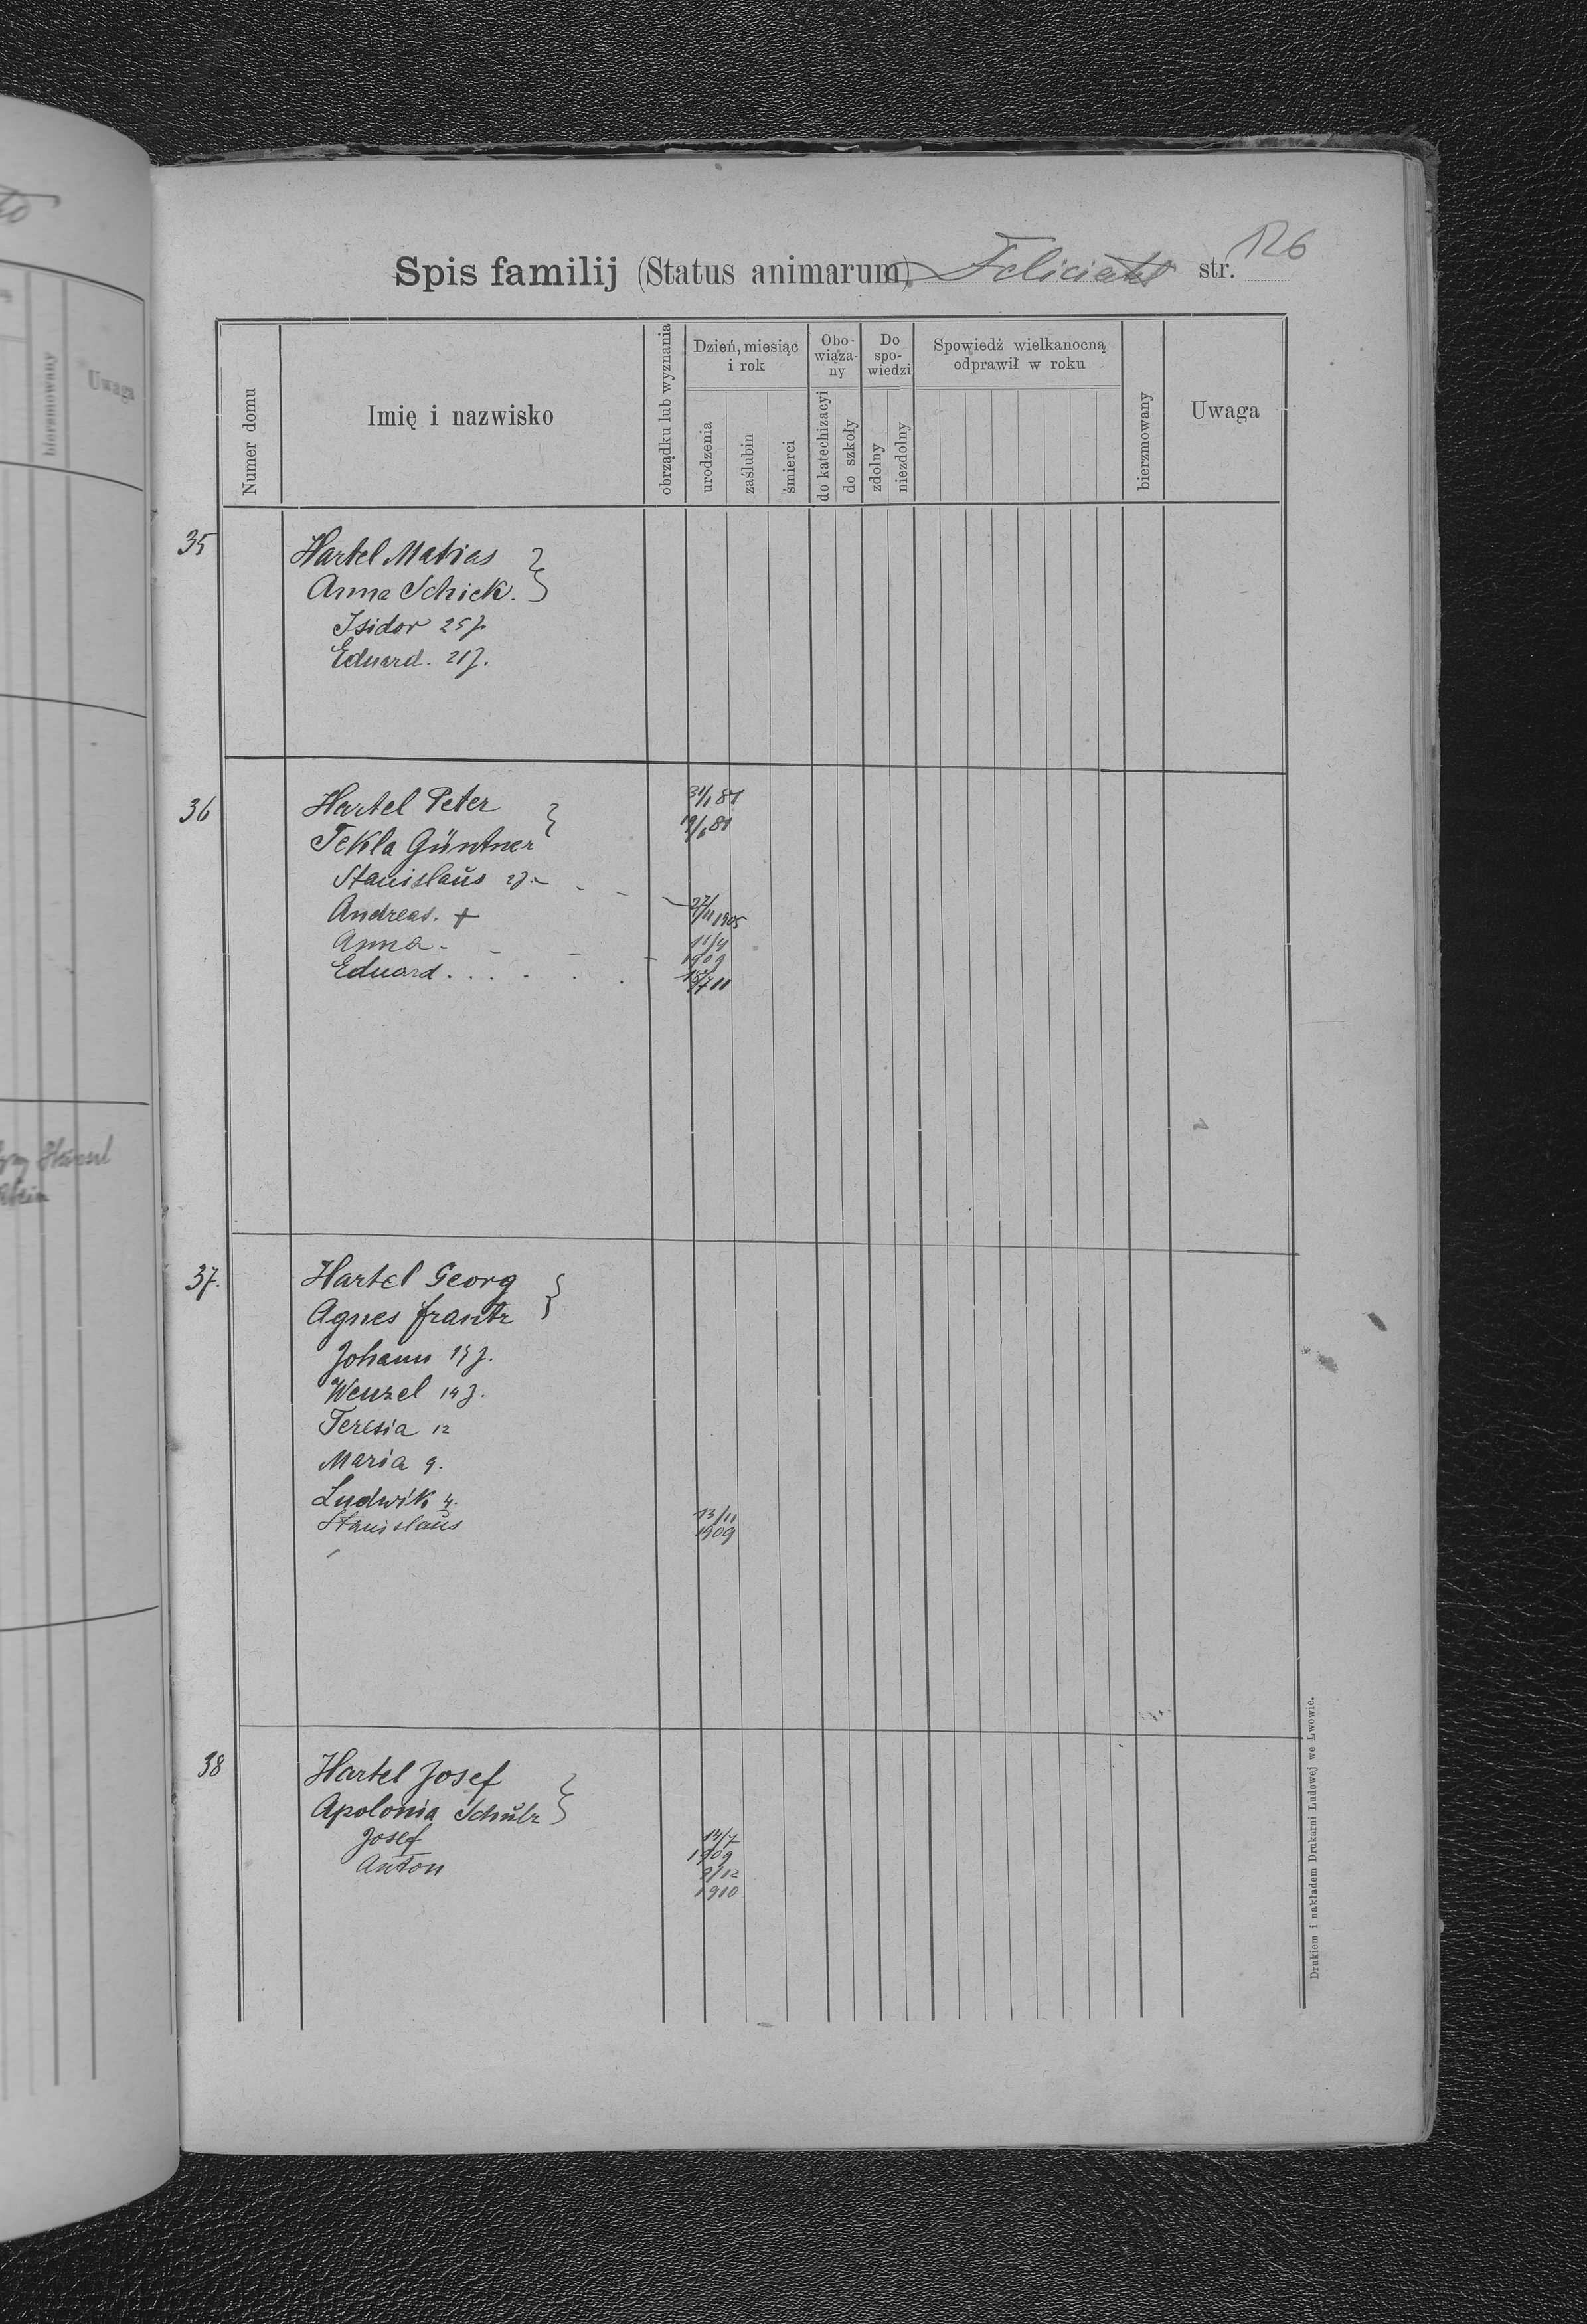 Spis familij (Status animarum) str. 126
Numer domu
Imię i nazwisko
obrządku lub wyznania
Dzień, miesiąc i rok
urodzenia
zaślubin
śmierci
Obo-
wiąza-
ny
do katechizacyi
do szkoły
Do
spo-
wiedzi
zdolny
niezdolny
Spowiedź wielkanocną
odprawił w roku
bierzmowany
Uwaga
35 Hartel Matias
Anna Schick.
Isidor 25 J.
Eduard. 21 J.
36 Hartel Peter 31/1 81
Tekla Güntner 19/6 81
Stanislaŭs 2 J.
Andreas. + 27/11 1905
Anna 11/4 1909
Eduard 11
37. Hartel Georg
Agnes Frantz
Johann J.
Wenzel 14 J.
Teresia 12
Maria 9.
Ludwik 4.
Stanislaŭs 13/11 1909
38 Hartel Josef
Apolonia Schŭlz
Josef 14/7 1909
Anton 9/12 1910
Drukiem i nakładem Drukarni Ludowej we Lwowie.
bierzmowany
Uwaga